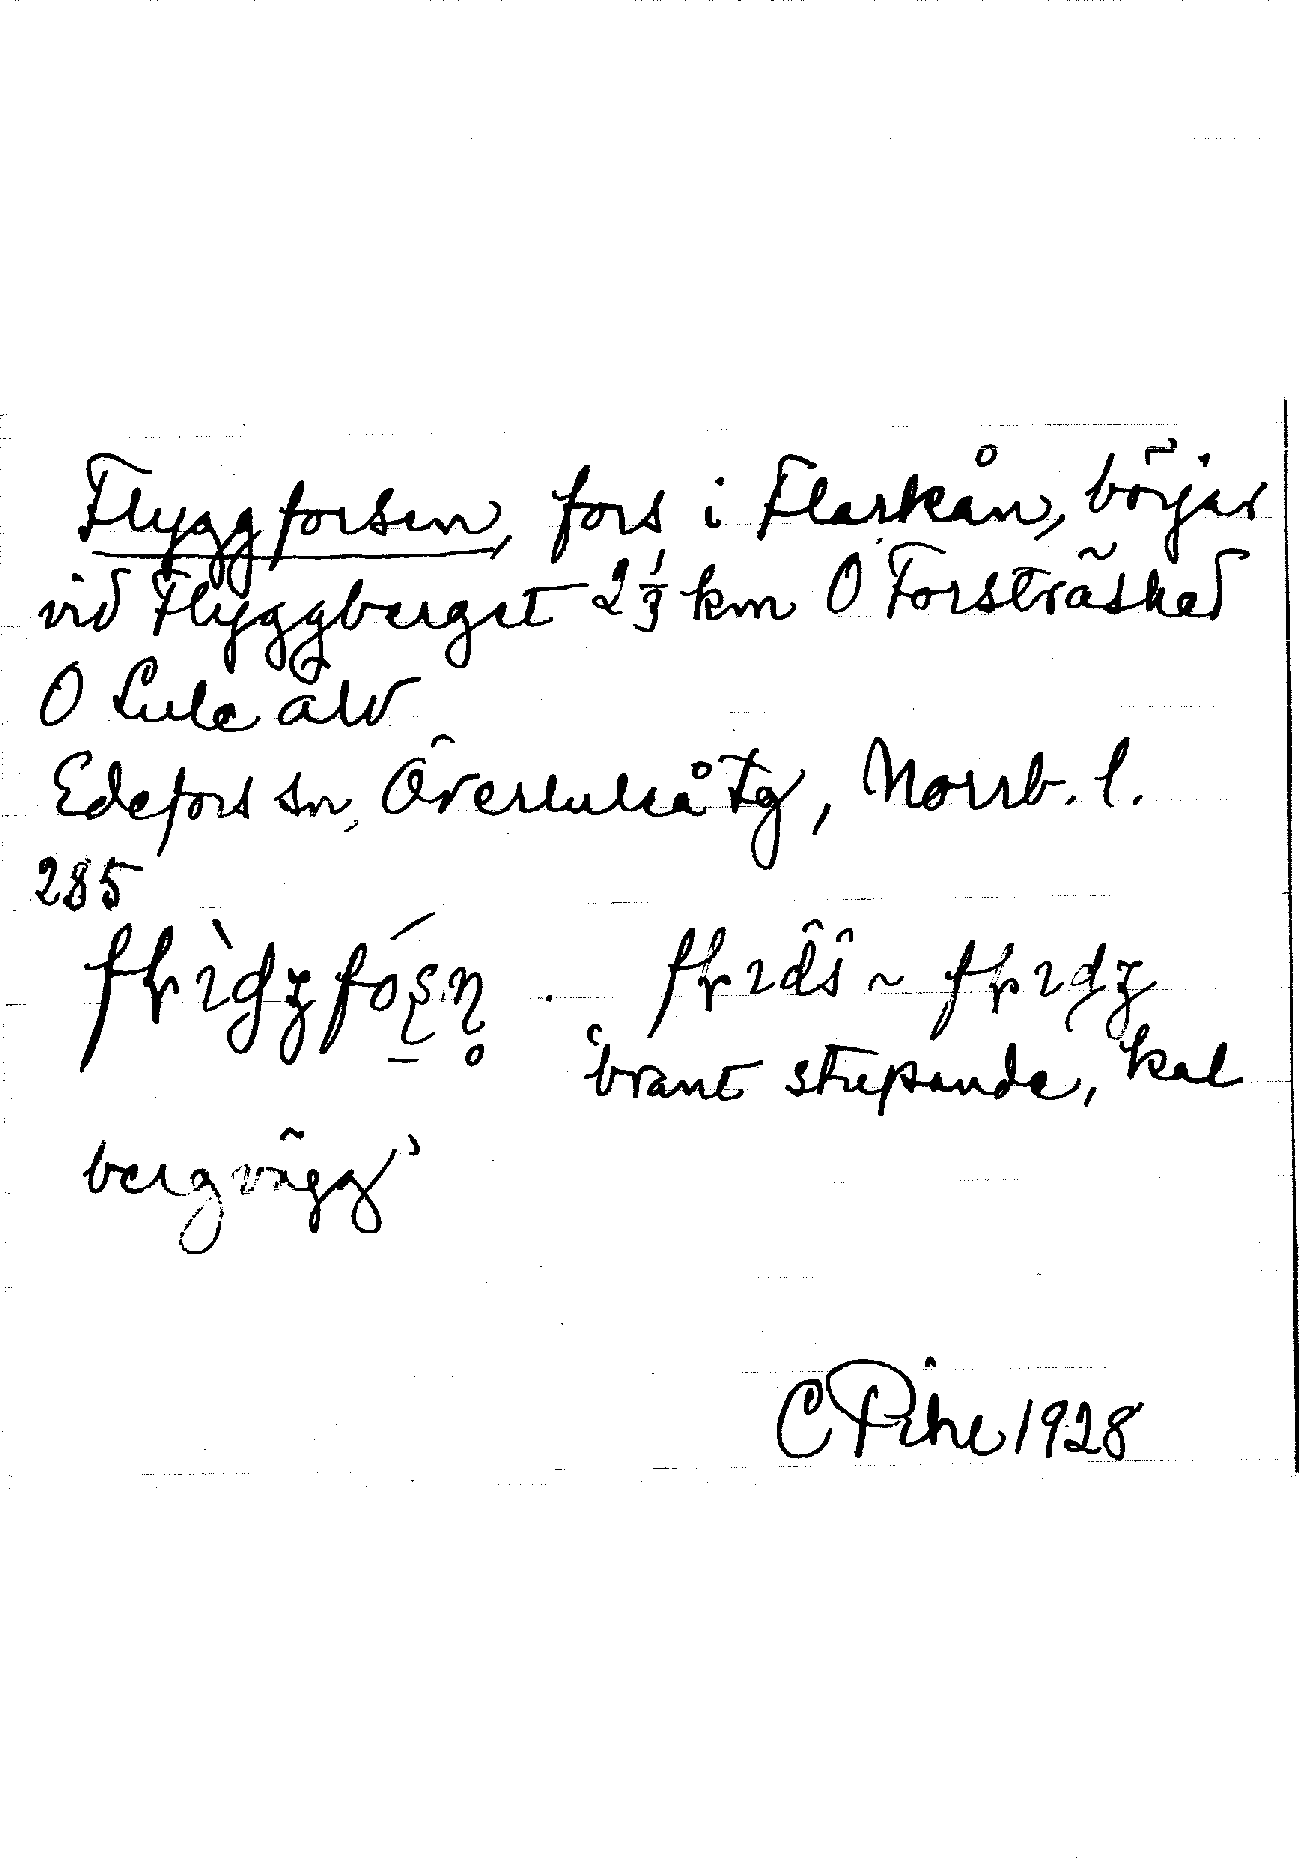 Flyggforsen, fors i Flarkån, börjar
vid Flyggberget 2 1/3 km O Forsträsket
O Lule älv
Edefors sn, Överluleå tg, Norrb. l.
285
‘brant stupande, kal
bergvägg’
C Pihl 1928